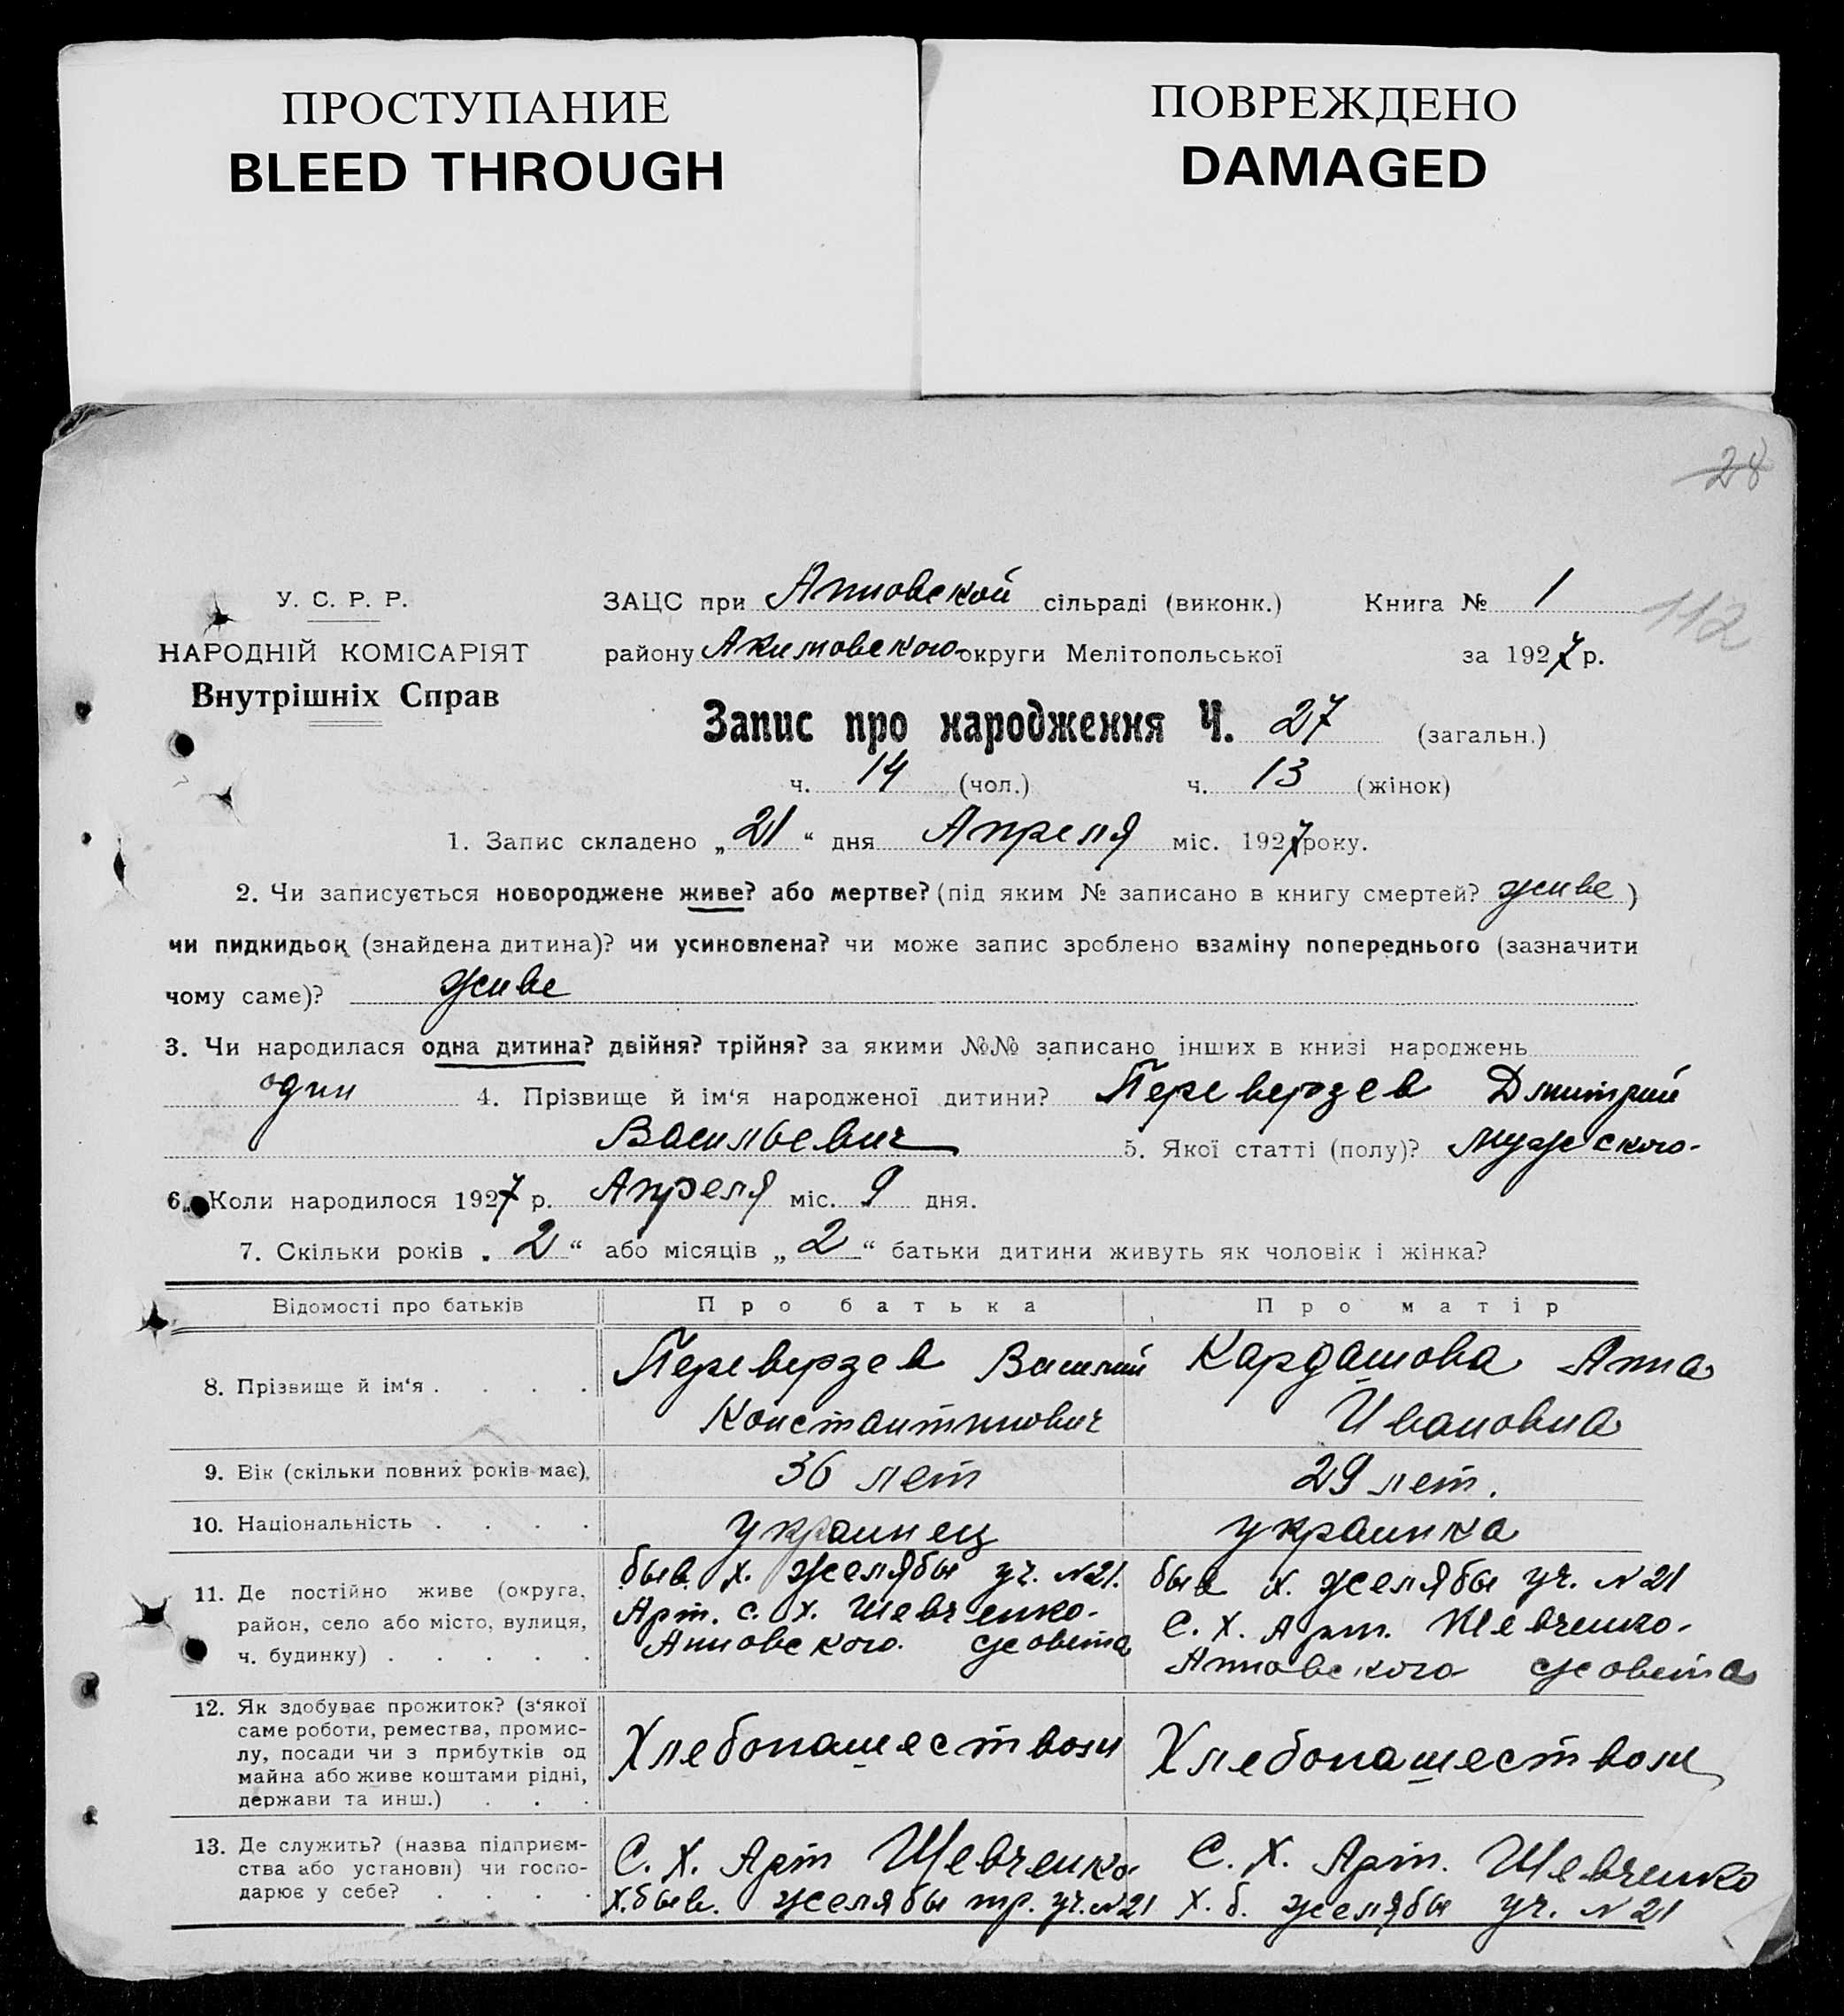 ПРОСТУПАНИЕ
BLEED THROUGH
ПОВРЕЖДЕНО
DAMAGED
28
У. С. Р. Р.
НАРОДНІЙ КОМІСАРІЯТ
Внутрішніх Справ
ЗАЦС при Анновской сільраді (виконк.) Книга № 1
112
району Акимовского округи Мелітопольської за 1927 р.
Запис про народження Ч. 27 (загальн.)
ч. 14 (чол.) ч. 13 (жінок)
1. Запис складено „21“ дня Апреля міс. 1927 року.
2. Чи записується новороджене живе? або мертве? (під яким № записано в книгу смертей? живе)
чи пидкидьок (знайдена дитина)? чи усиновлена? чи може запис зроблено взаміну попереднього (зазначити
чому саме)? живе
3. Чи народилася одна дитина? двійня? трійня? за якими №№ записано інших в книзі народжень
один 4. Прізвище й ім‘я народженої дитини? Переверзев Дмитрий
Васильевич 5. Якої статті (полу)? мужского
6. Коли народилося 1927 р. Апреля міс. 9 дня.
7. Скільки років „2“ або місяців „2“ батьки дитини живуть як чоловік і жінка?
Відомості про батьків
Про батька
Про матір
8. Прізвище й ім‘я
Переверзев Василий
Константинович
Кардашова Анна
Ивановна
9. Вік (скільки повних років має)
36 лет
29 лет.
10. Національність
украинец
украинка
11. Де постійно живе (округа,
район, село або місто, вулиця,
ч. будинку)
быв. х. Желябы уч. №21.
Арт. с. х. Шевченко
Анновского с/совета
быв х. Желябы уч. №21
С. Х. Арт. Шевченко
Анновского с/совета
12. Як здобуває прожиток? (з‘якої
саме роботи, ремества, промис-
лу, посади чи з прибутків од
майна або живе коштами рідні,
держави та инш.)
Хлебопашеством
Хлебопашеством
13. Де служить? (назва підприєм-
ства або установи) чи госпо-
дарює у себе?
С. Х. Арт Шевченко
х. быв. Желябы тр. уч. №21
С. Х. Арт. Шевченко
х. б. Желябы уч. №21